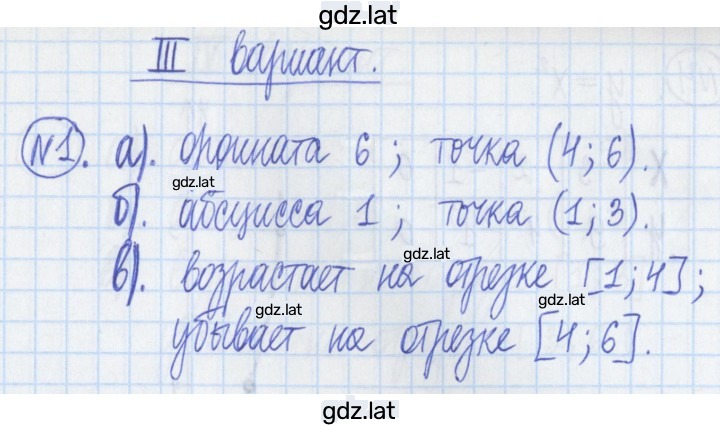 gdz.lat
III вариант.
№1. а). ордината 6 ; точка (4; 6).
gdz.lat
б). абсцисса 1 ; точка (1; 3).
gdz.lat
в). возрастает на отрезке [1; 4] ;
gdz.lat
gdz.lat
убывает на отрезке [4; 6].
gdz.lat